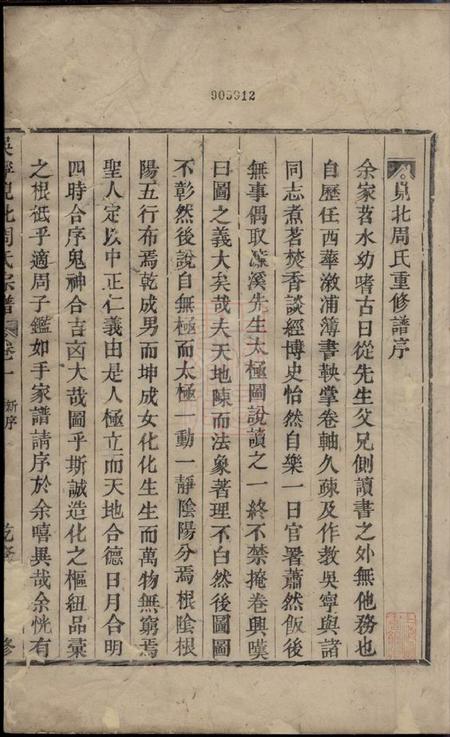 905912
峴北周氏重修譜序
余家苕水幼嗜古日從先生父兄側讀書之外無他務也
自歷任西華漵浦簿書鞅掌卷軸久疎及作教吳寧與諸
同志煮茗焚香談經博史怡然自樂一日官署蕭然飯後
無事偶取濂溪先生太極圖說讀之一終不禁掩卷興嘆
曰圖之義大矣哉夫天地陳而法象著理不白然後圖圖
不彰然後說自無極而太極一動一靜陰陽分焉根陰根
陽五行布焉乾成男而坤成女化化生生而萬物無窮焉
聖人定以中正仁義由是人極立而天地合德日月合明
四時合序鬼神合吉凶大哉圖乎斯誠造化之樞紐品彙
之根柢乎適周子鑑如手家譜請序於余嘻異哉余恍有
吳寧峴北周氏宗譜 卷一 新序